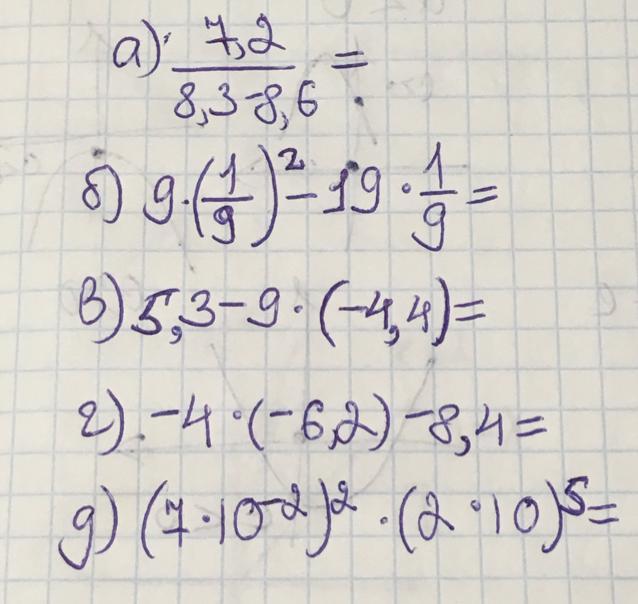 а) 7,2 / 8,3-8,6 =
б) 9·(1/9)² - 19·1/9 =
в) 5,3-9·(-4,4)=
г) -4·(-6,2)-8,4=
д) (7·10⁻²)²·(2·10)⁵=